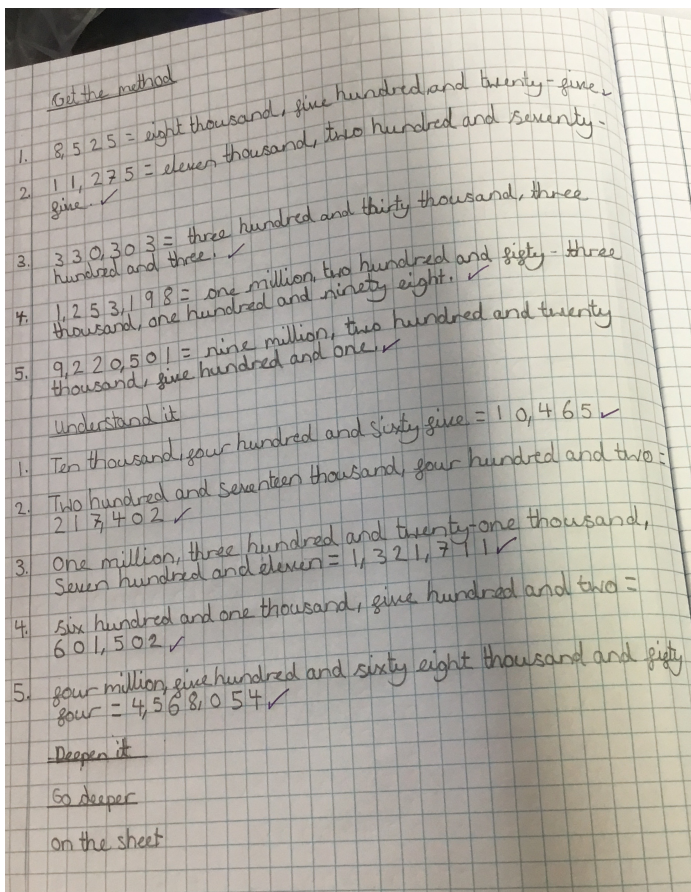 Get the method
1. 8,525 = eight thousand, five hundred and twenty-five.
2. 11,275 = eleven thousand, two hundred and seventy-
five. ✓
3. 330,303 = three hundred and thirty thousand, three
hundred and three. ✓
4. 1,253,198 = one million, two hundred and fifty-three
thousand, one hundred and ninety eight. ✓
5. 9,220,501 = nine million, two hundred and twenty
thousand, five hundred and one. ✓
Understand it
1. Ten thousand, four hundred and sixty five = 10,465 ✓
2. Two hundred and seventeen thousand, four hundred and two =
217,402 ✓
3. One million, three hundred and twenty-one thousand,
Seven hundred and eleven = 1,321,711 ✓
4. six hundred and one thousand, five hundred and two =
601,502 ✓
5. four million, five hundred and sixty eight thousand and fifty
four = 4,568,054 ✓
Deepen it
Go deeper
on the sheet